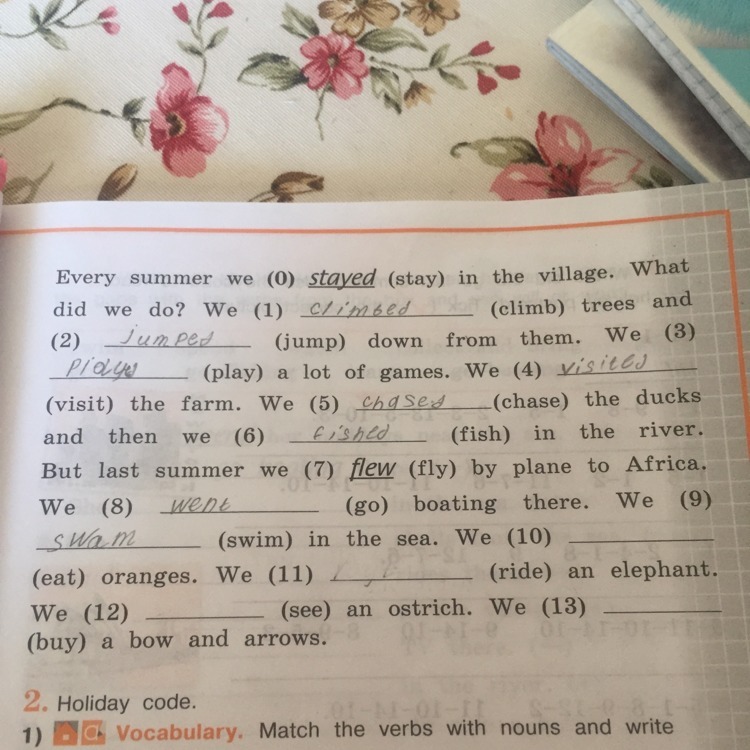 Every summer we (0) stayed (stay) in the village. What
did we do? We (1) climbed (climb) trees and
(2) jumped (jump) down from them. We (3)
(play) a lot of games. We (4) visited
(visit) the farm. We (5) chased (chase) the ducks
and then we (6) fished (fish) in the river.
But last summer we (7) flew (fly) by plane to Africa.
We (8) went (go) boating there. We (9)
swam (swim) in the sea. We (10)
(eat) oranges. We (11) (ride) an elephant.
We (12) (see) an ostrich. We (13)
(buy) a bow and arrows.
2. Holiday code.
1) Vocabulary. Match the verbs with nouns and write